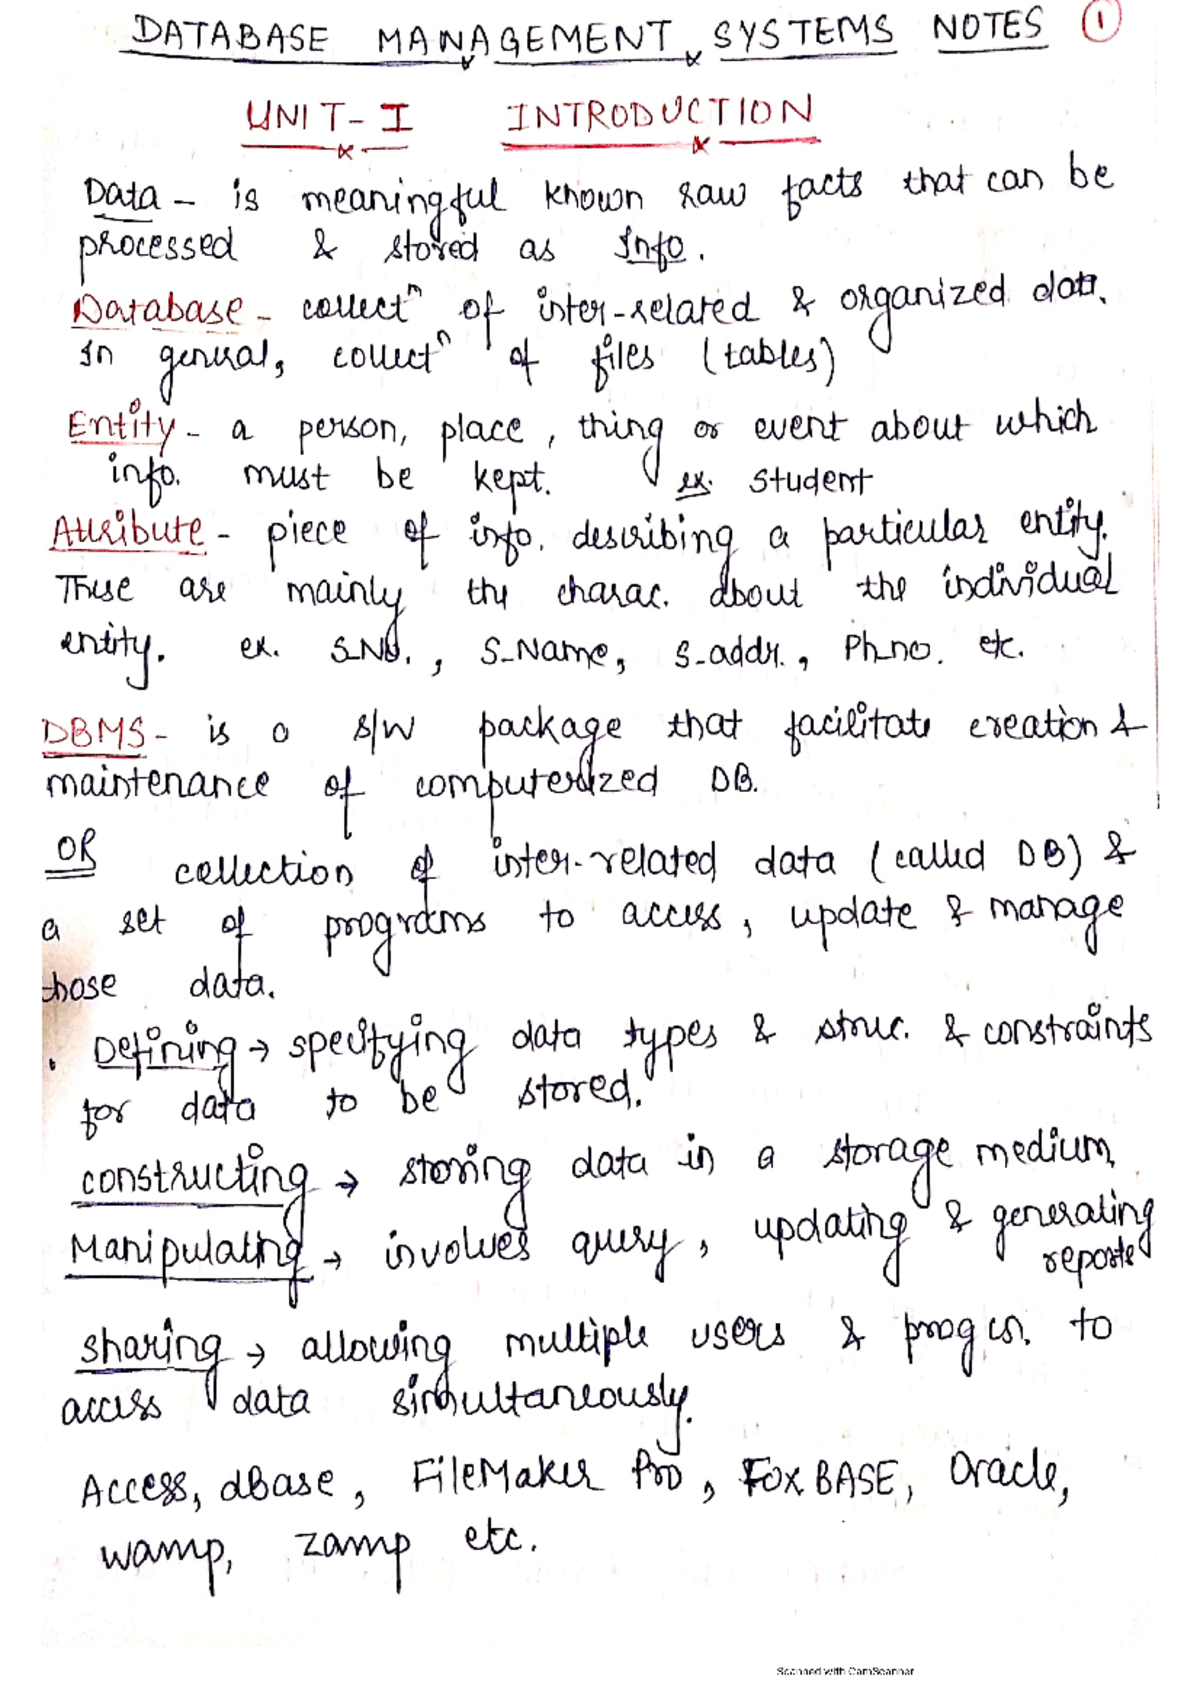 DATABASE MANAGEMENT SYSTEMS NOTES 1
UNIT-I INTRODUCTION
Data - is meaningful known raw facts that can be
processed & stored as Info.
Database - collectⁿ of inter-related & organized data.
In general, collectⁿ of files (tables)
Entity - a person, place, thing or event about which
info. must be kept. ex. Student
Attribute - piece of info. describing a particular entity.
These are mainly the charac. about the individual
entity. ex. S_No., S_Name, S_addr., Ph_no. etc.
DBMS - is a s/w package that facilitate creation &
maintenance of computerized DB.
OR collection of inter-related data (called DB) &
a set of programs to access, update & manage
those data.
. Defining → specifying data types & struc. & constraints
for data to be stored.
constructing → storing data in a storage medium,
Manipulating → involves query, updating & generating
reports
sharing → allowing multiple users & progrs. to
access data simultaneously.
Access, dbase, FileMaker Pro, FOXBASE, Oracle,
wamp, zamp etc.
Scanned with CamScanner